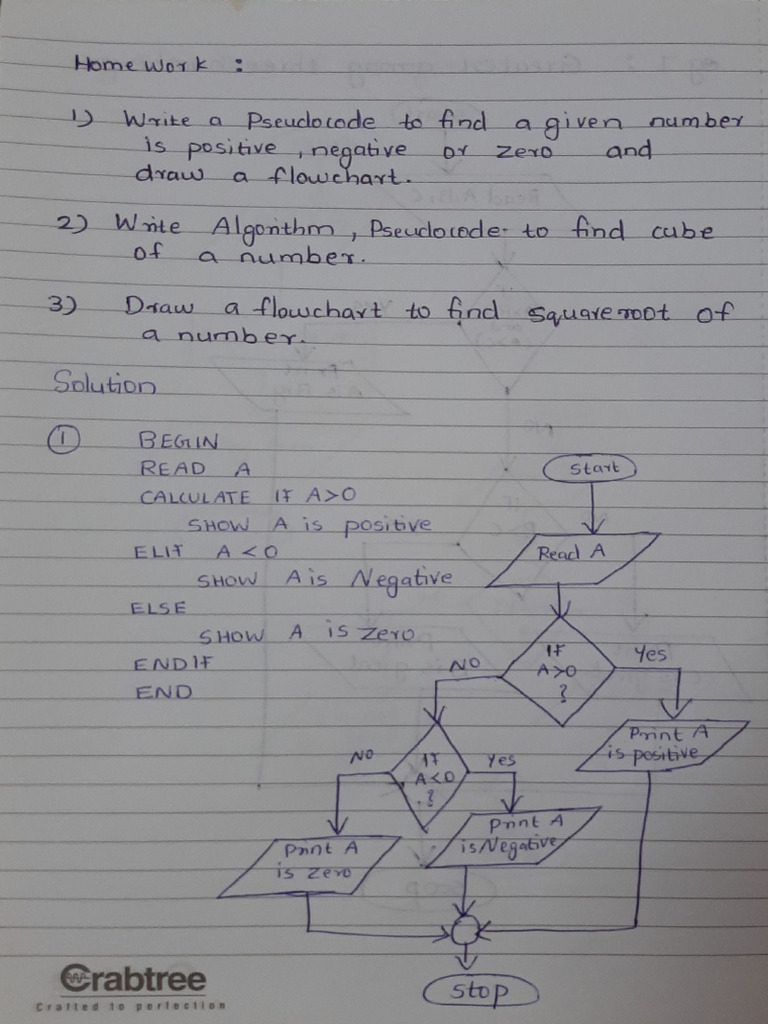 Home Work :
1) Write a Pseudocode to find a given number
is positive, negative or zero and
draw a flowchart.
2) Write Algorithm, Pseudocode to find cube
of a number.
3) Draw a flowchart to find square root of
a number.
Solution
① BEGIN
READ A
CALCULATE If A>0
SHOW A is positive
ELIf A <0
SHOW A is Negative
ELSE
SHOW A is zero
ENDIf
END
Start
Read A
If
A>0
?
Yes
NO
Print A
is positive
If
A<0
?
NO
Yes
Print A
is Negative
Print A
is zero
Stop
Crabtree
Crafted to perfection